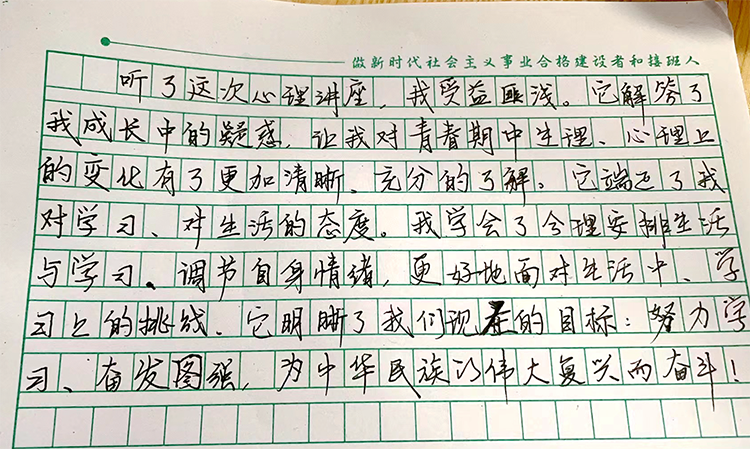 做新时代社会主义事业合格建设者和接班人
听了这次心理讲座，我受益匪浅。它解答了
我成长中的疑惑，让我对青春期中生理、心理上
的变化有了更加清晰、充分的了解。它端正了我
对学习、对生活的态度。我学会了合理安排生活
与学习、调节自身情绪，更好地面对生活中、学
习上的挑战。它明晰了我们现在的目标：努力学
习、奋发图强，为中华民族的伟大复兴而奋斗！